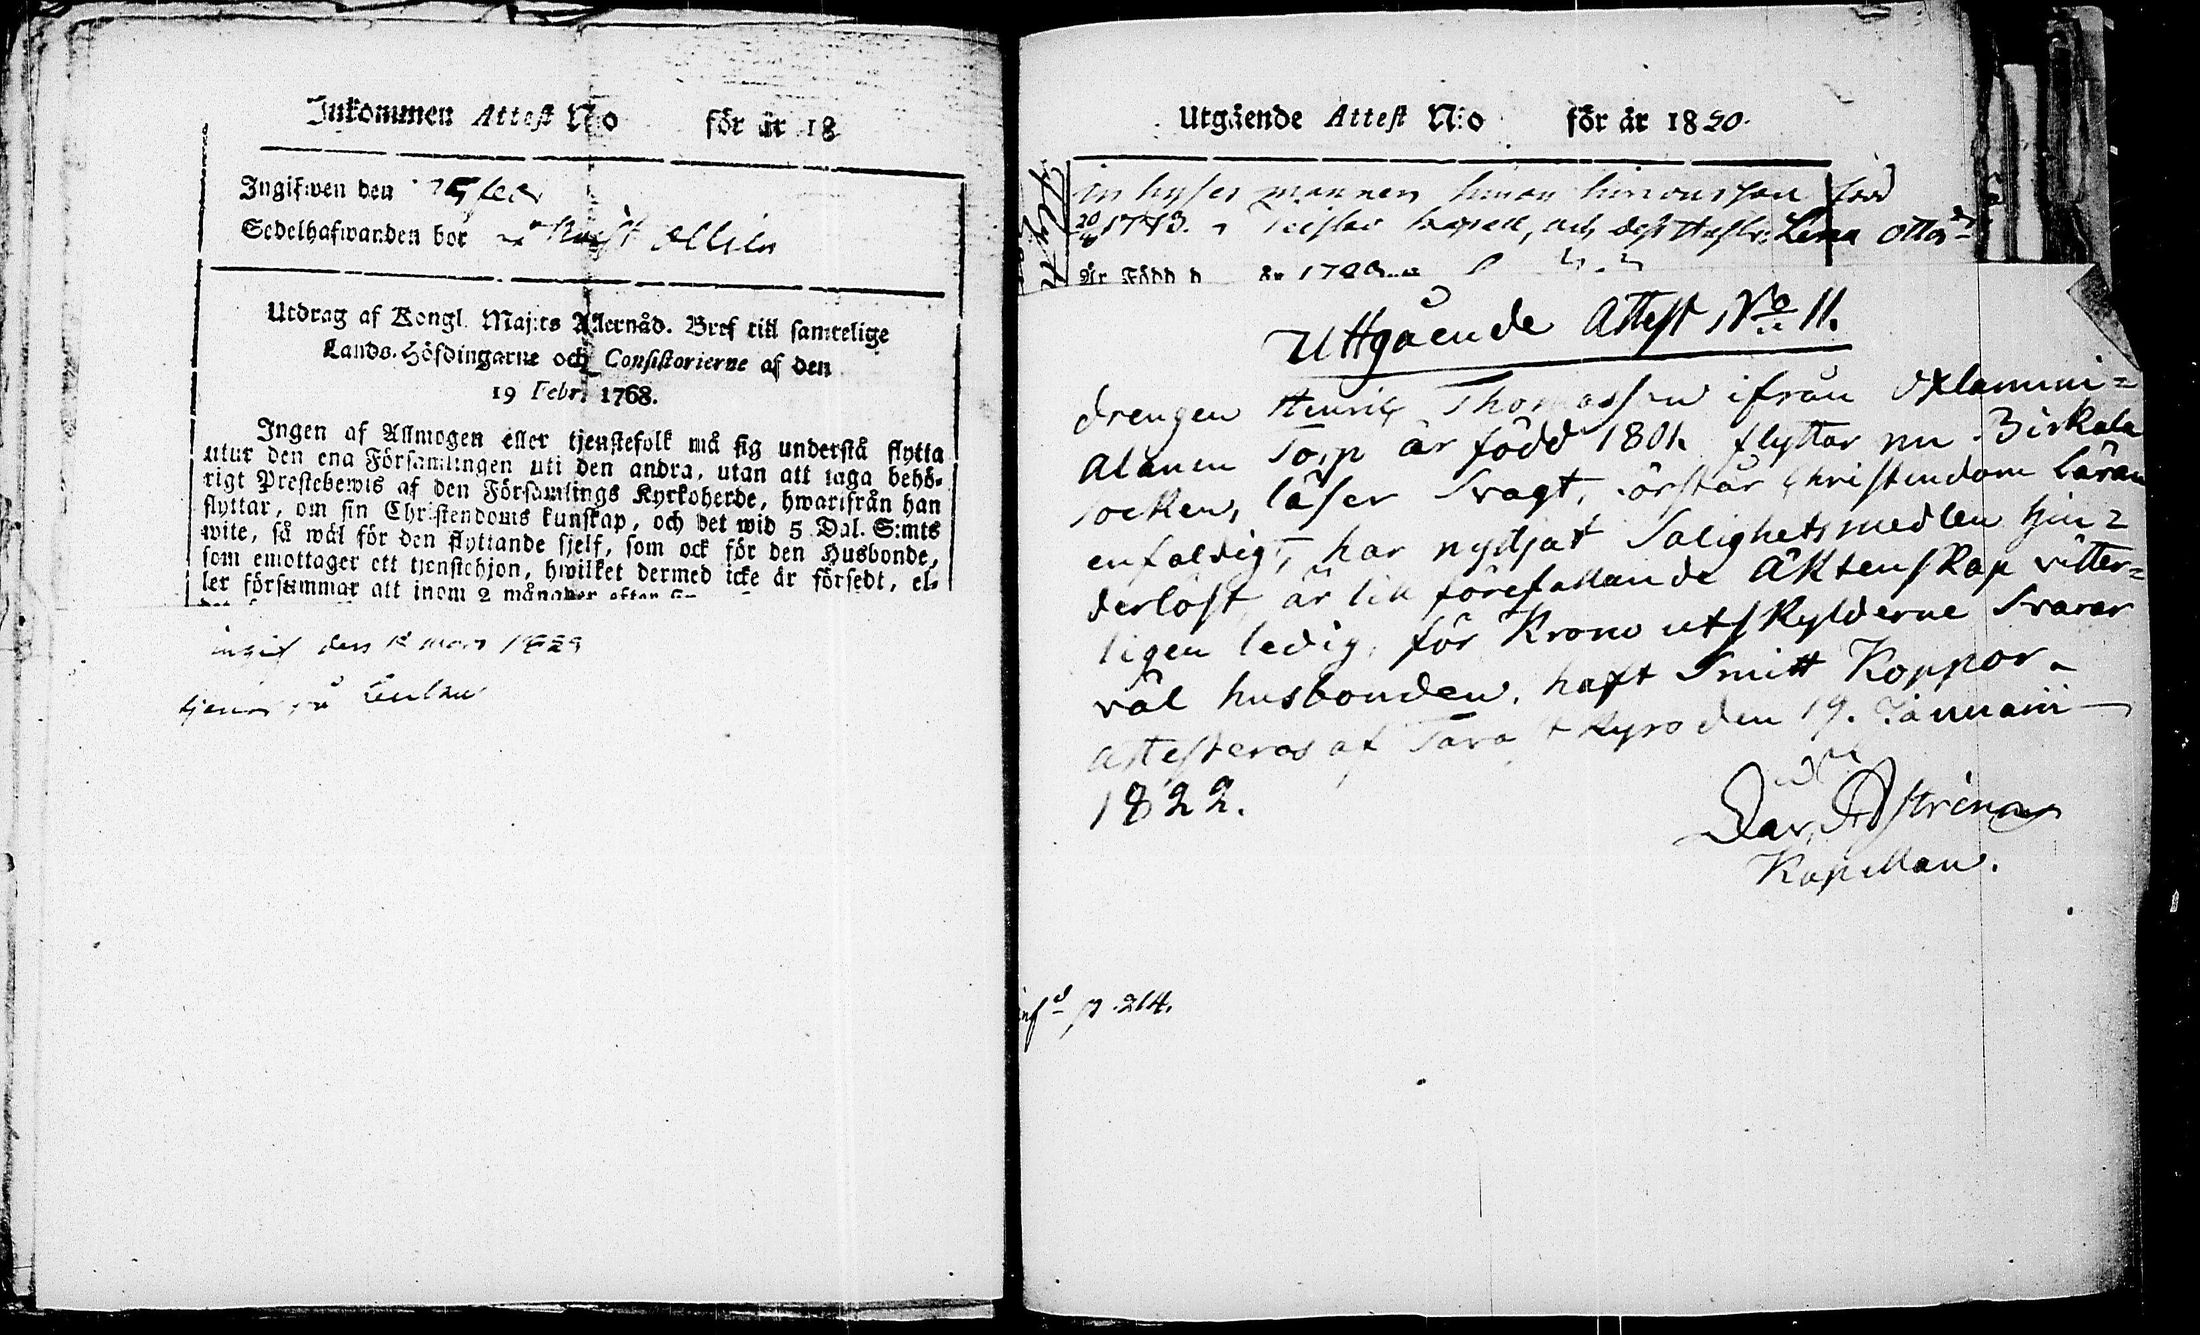 Inkommen Attest N:o för år 18
Ingifwen den
Sedelhafwanden bor
Utdrag af Kongl. Maj:ts Allernåd. Bref till samtelige
Lands-Höfdingarne och Consistorierne af den
19 Febr. 1768.
Ingen af Allmogen eller tjenstefolk må sig understå flytta
utur den ena Församlingen uti den andra, utan att taga behö-
rigt Prestebewis af den Församlings Kyrkoherde, hwarifrån han
flyttar, om sin Christendoms kunskap, och det wid 5 Dal. S:mts
wite, så wäl för den flyttande sjelf, som ock för den Husbonde,
som emottager ett tjenstehjon, hwilket dermed icke är försedt, el-
ler försummar att inom 2 månader efter
den 12 mars
tjenar på
Utgående Attest N:o för år 1820.
in hyses mannen Simon Simonsson född
1773. kapell, och dess Hustru Lena Ottosdr
Är Född d. år
Uttgående Attest No 11.
drengen Henrik Thomasson ifrån
alanen Torp är född 1801. flyttar nu Birkala
Socken, läser svagt, förstår Christendom Läran
enfaldigt, har nydjat Salighetsmedlen hin-
derlöst, är till förefallande äktenskap vitter-
ligen ledig, för Krono utskylderne Svarar
väl husbonden. haft Smitt Koppor.
attesteras af Tava t Kyro den 19. Januarii
1822.
Dav. Astrenius
Kapellan.
infd p. 214.